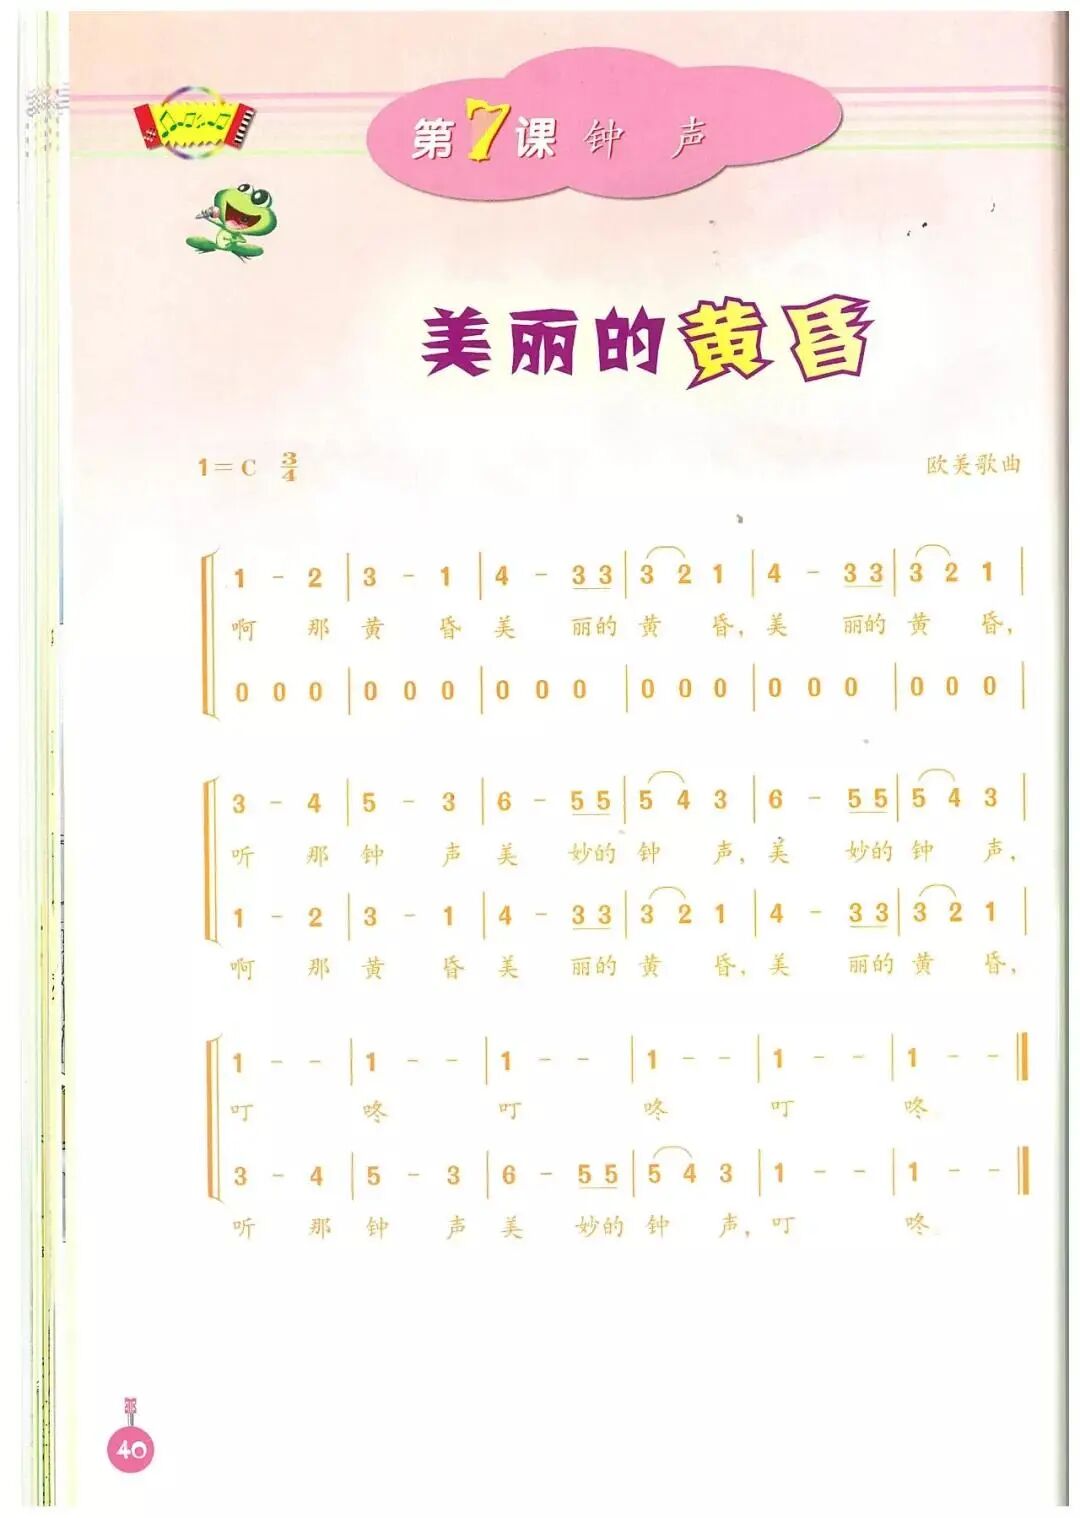 第7课 钟 声
美丽的黄昏
1=C 3/4 欧美歌曲
1 - 2 | 3 - 1 | 4 - 3 3 | 3 2 1 | 4 - 3 3 | 3 2 1 |
啊 那 黄 昏 美 丽的 黄 昏，美 丽的 黄 昏，
0 0 0 | 0 0 0 | 0 0 0 | 0 0 0 | 0 0 0 | 0 0 0 |
3 - 4 | 5 - 3 | 6 - 5 5 | 5 4 3 | 6 - 5 5 | 5 4 3 |
听 那 钟 声 美 妙的 钟 声，美 妙的 钟 声，
1 - 2 | 3 - 1 | 4 - 3 3 | 3 2 1 | 4 - 3 3 | 3 2 1 |
啊 那 黄 昏 美 丽的 黄 昏，美 丽的 黄 昏，
1 - - | 1 - - | 1 - - | 1 - - | 1 - - | 1 - - ‖
叮 咚 叮 咚 叮 咚
3 - 4 | 5 - 3 | 6 - 5 5 | 5 4 3 | 1 - - | 1 - - ‖
听 那 钟 声 美 妙的 钟 声，叮 咚
40